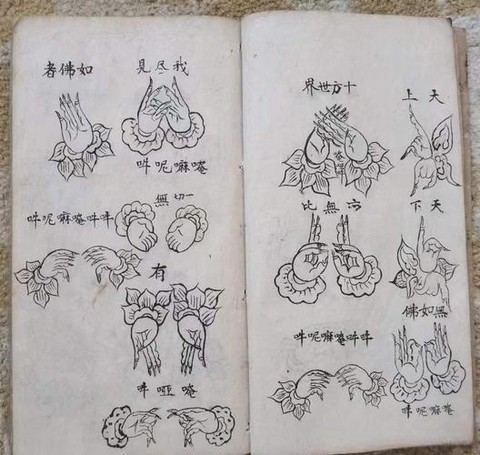 天上
天下
無如佛
唵嘛呢吽
十方世界
亦無比
吽吽唵嘛呢吽
我尽見
唵嘛呢吽
一切無
有
唵啞吽
如佛者
吽吽唵嘛呢吽